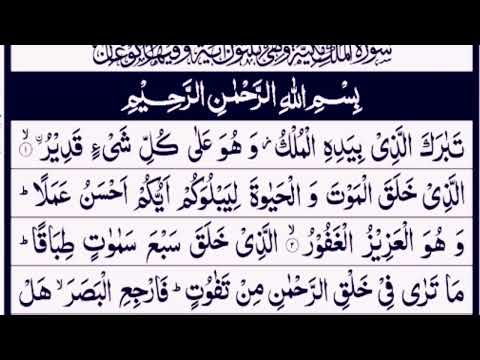 سورة الملك مكية وهي ثلثون اية وفيها ركوعان
بِسْمِ اللهِ الرَّحْمٰنِ الرَّحِيْمِ
تَبٰرَكَ الَّذِیْ بِیَدِهِ الْمُلْكُ ؗ وَ هُوَ عَلٰی كُلِّ شَیْءٍ قَدِیْرُ ۙ﴿۱﴾
الَّذِیْ خَلَقَ الْمَوْتَ وَ الْحَیٰوةَ لِیَبْلُوَكُمْ اَیُّكُمْ اَحْسَنُ عَمَلًا ؕ
وَ هُوَ الْعَزِیْزُ الْغَفُوْرُ ۙ﴿۲﴾ الَّذِیْ خَلَقَ سَبْعَ سَمٰوٰتٍ طِبَاقًا ؕ
مَا تَرٰی فِیْ خَلْقِ الرَّحْمٰنِ مِنْ تَفٰوُتٍ ؕ فَارْجِعِ الْبَصَرَ ۙ هَلْ